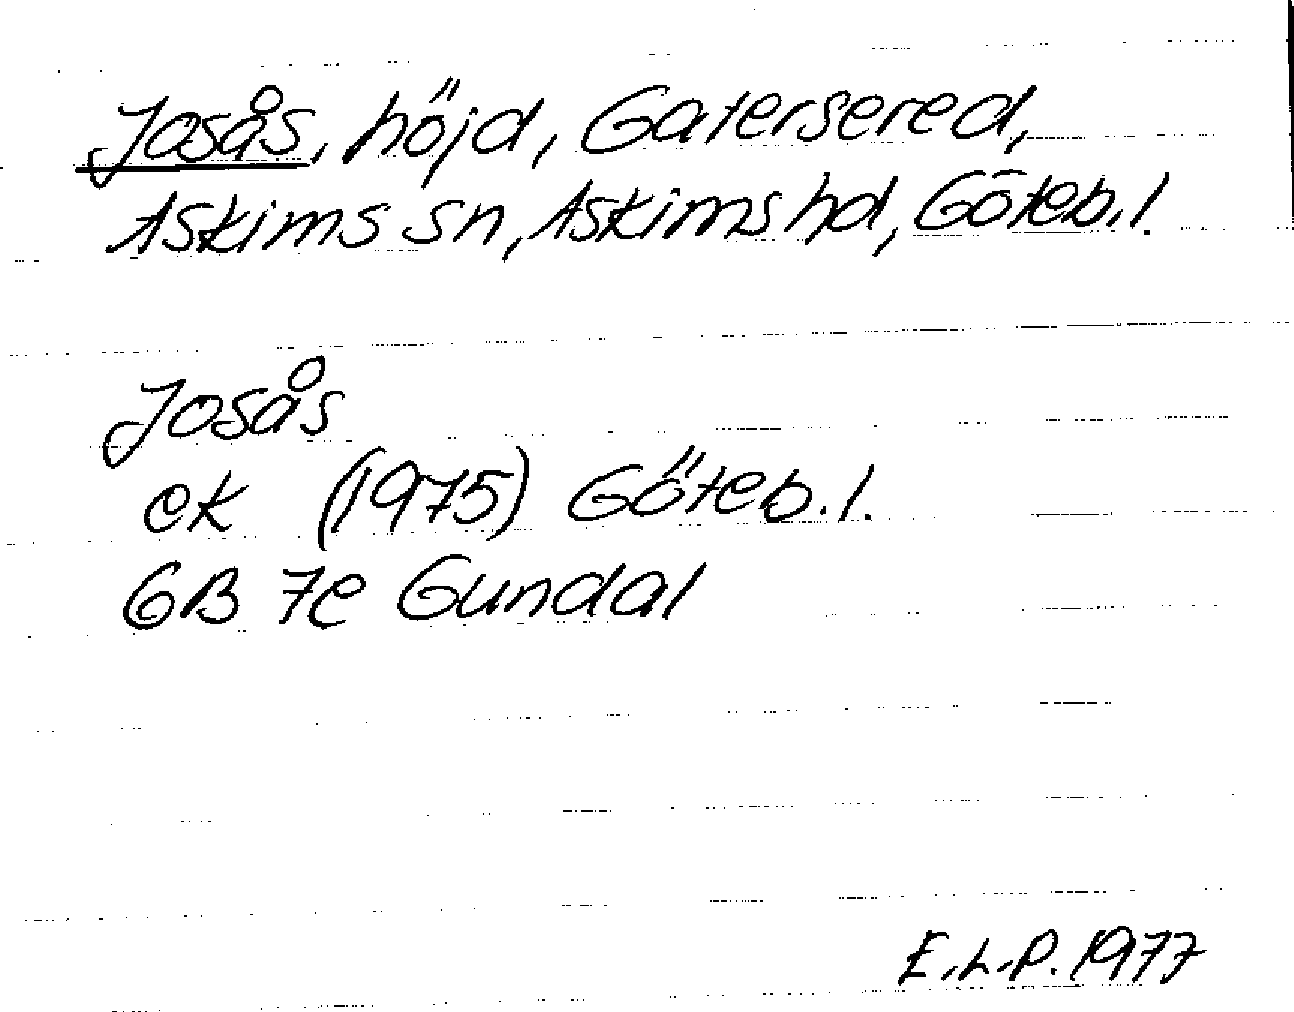 Josås, höjd, Gatersered,
Askims sn, Askims hd, Göteb.l.
Josås
ek (1975) Göteb.l.
6B 7e Gundal
E.L.P. 1977